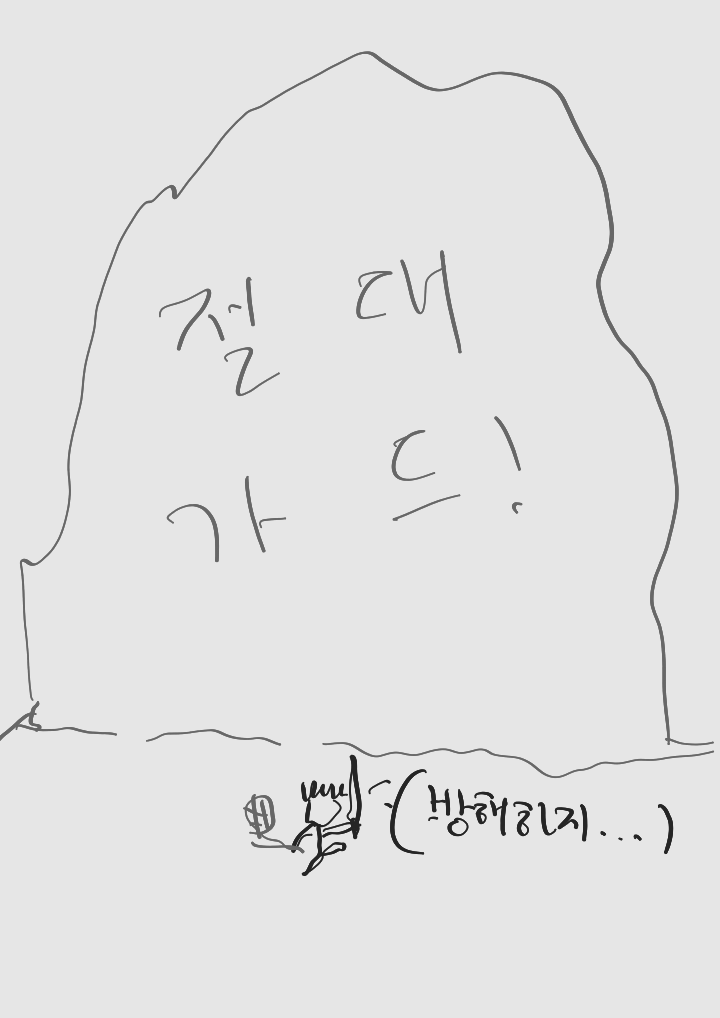 절대
가드!
(방해하지...)